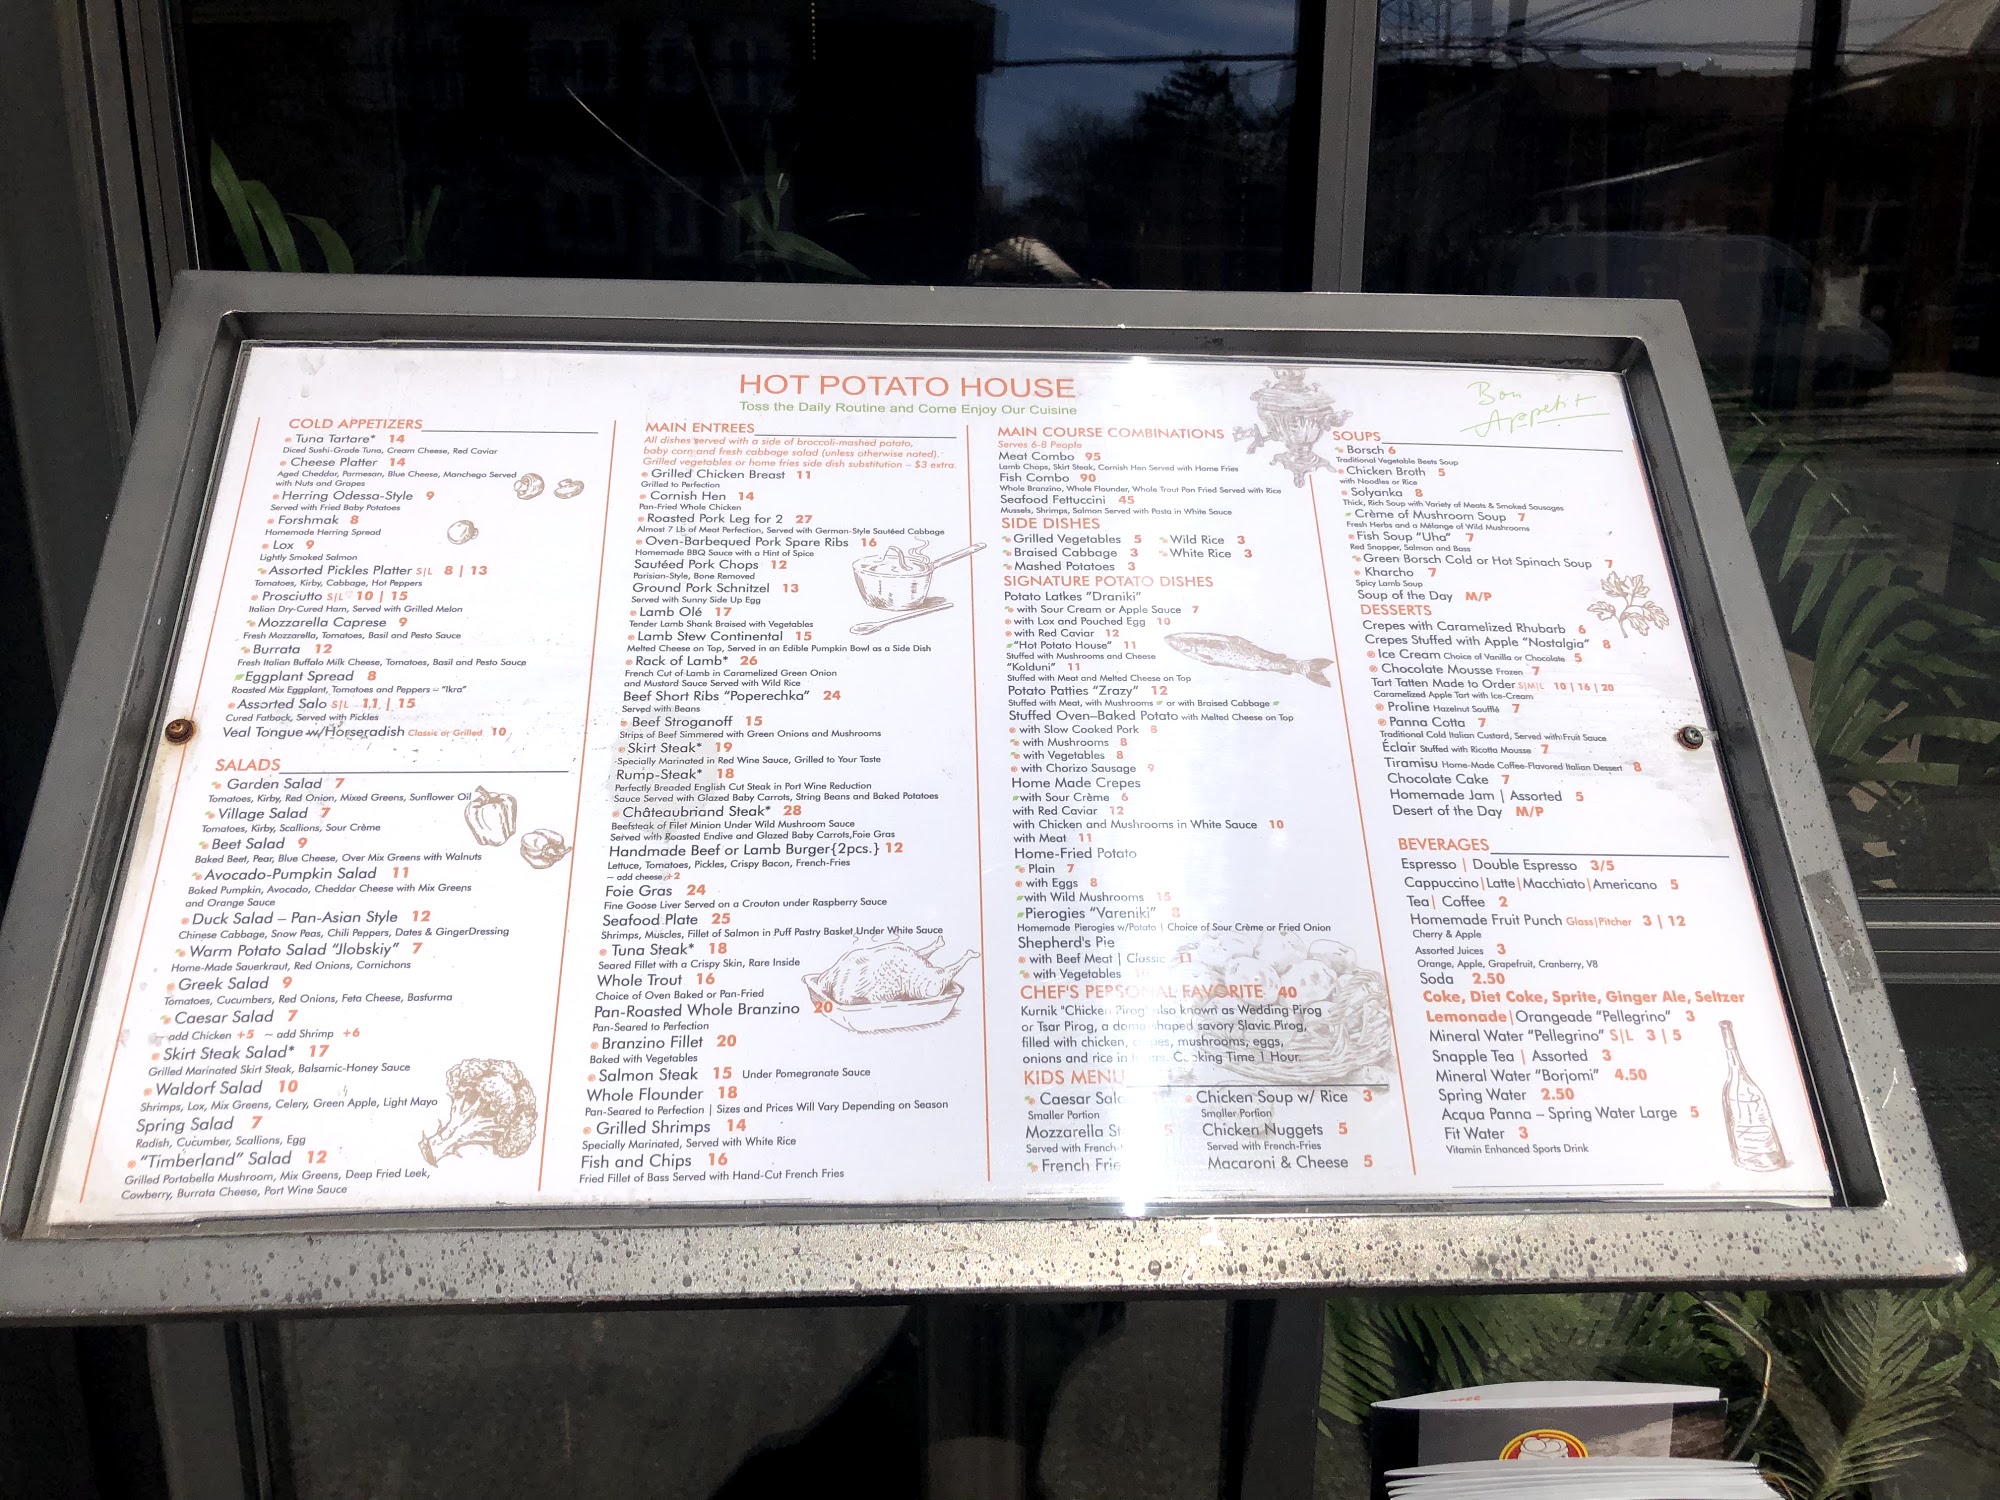 HOT POTATO HOUSE
Toss the Daily Routine and Come Enjoy Our Cuisine
Bon
Appetit
COLD APPETIZERS
Tuna Tartare* 14
Diced Sushi-Grade Tuna, Cream Cheese, Red Caviar
Cheese Platter 14
Aged Cheddar, Parmesan, Blue Cheese, Manchego Served
with Nuts and Grapes
Herring Odessa-Style 9
Served with Fried Baby Potatoes
Forshmak 8
Homemade Herring Spread
Lox 9
Lightly Smoked Salmon
Assorted Pickles Platter S|L 8 | 13
Tomatoes, Kirby, Cabbage, Hot Peppers
Prosciutto S|L 10 | 15
Italian Dry-Cured Ham, Served with Grilled Melon
Mozzarella Caprese 9
Fresh Mozzarella, Tomatoes, Basil and Pesto Sauce
Burrata 12
Fresh Italian Buffalo Milk Cheese, Tomatoes, Basil and Pesto Sauce
Eggplant Spread 8
Roasted Mix Eggplant, Tomatoes and Peppers – "Ikra"
Assorted Salo S|L 11 | 15
Cured Fatback, Served with Pickles
Veal Tongue w/Horseradish Classic or Grilled 10
SALADS
Garden Salad 7
Tomatoes, Kirby, Red Onion, Mixed Greens, Sunflower Oil
Village Salad 7
Tomatoes, Kirby, Scallions, Sour Crème
Beet Salad 9
Baked Beet, Pear, Blue Cheese, Over Mix Greens with Walnuts
Avocado-Pumpkin Salad 11
Baked Pumpkin, Avocado, Cheddar Cheese with Mix Greens
and Orange Sauce
Duck Salad – Pan-Asian Style 12
Chinese Cabbage, Snow Peas, Chili Peppers, Dates & GingerDressing
Warm Potato Salad "Jlobskiy" 7
Home-Made Sauerkraut, Red Onions, Cornichons
Greek Salad 9
Tomatoes, Cucumbers, Red Onions, Feta Cheese, Basfurma
Caesar Salad 7
~ add Chicken +5 ~ add Shrimp +6
Skirt Steak Salad* 17
Grilled Marinated Skirt Steak, Balsamic-Honey Sauce
Waldorf Salad 10
Shrimps, Lox, Mix Greens, Celery, Green Apple, Light Mayo
Spring Salad 7
Radish, Cucumber, Scallions, Egg
"Timberland" Salad 12
Grilled Portabella Mushroom, Mix Greens, Deep Fried Leek,
Cowberry, Burrata Cheese, Port Wine Sauce
MAIN ENTREES
All dishes served with a side of broccoli-mashed potato,
baby corn and fresh cabbage salad (unless otherwise noted).
Grilled vegetables or home fries side dish substitution – $3 extra.
Grilled Chicken Breast 11
Grilled to Perfection
Cornish Hen 14
Pan-Fried Whole Chicken
Roasted Pork Leg for 2 27
Almost 7 Lb of Meat Perfection, Served with German-Style Sautéed Cabbage
Oven-Barbequed Pork Spare Ribs 16
Homemade BBQ Sauce with a Hint of Spice
Sautéed Pork Chops 12
Parisian-Style, Bone Removed
Ground Pork Schnitzel 13
Served with Sunny Side Up Egg
Lamb Olé 17
Tender Lamb Shank Braised with Vegetables
Lamb Stew Continental 15
Melted Cheese on Top, Served in an Edible Pumpkin Bowl as a Side Dish
Rack of Lamb* 26
French Cut of Lamb in Caramelized Green Onion
and Mustard Sauce Served with Wild Rice
Beef Short Ribs "Poperechka" 24
Served with Beans
Beef Stroganoff 15
Strips of Beef Simmered with Green Onions and Mushrooms
Skirt Steak* 19
Specially Marinated in Red Wine Sauce, Grilled to Your Taste
Rump-Steak* 18
Perfectly Breaded English Cut Steak in Port Wine Reduction
Sauce Served with Glazed Baby Carrots, String Beans and Baked Potatoes
Châteaubriand Steak* 28
Beefsteak of Filet Minion Under Wild Mushroom Sauce
Served with Roasted Endive and Glazed Baby Carrots,Foie Gras
Handmade Beef or Lamb Burger{2pcs.} 12
Lettuce, Tomatoes, Pickles, Crispy Bacon, French-Fries
~ add cheese +2
Foie Gras 24
Fine Goose Liver Served on a Crouton under Raspberry Sauce
Seafood Plate 25
Shrimps, Muscles, Fillet of Salmon in Puff Pastry Basket Under White Sauce
Tuna Steak* 18
Seared Fillet with a Crispy Skin, Rare Inside
Whole Trout 16
Choice of Oven Baked or Pan-Fried
Pan-Roasted Whole Branzino 20
Pan-Seared to Perfection
Branzino Fillet 20
Baked with Vegetables
Salmon Steak 15 Under Pomegranate Sauce
Whole Flounder 18
Pan-Seared to Perfection | Sizes and Prices Will Vary Depending on Season
Grilled Shrimps 14
Specially Marinated, Served with White Rice
Fish and Chips 16
Fried Fillet of Bass Served with Hand-Cut French Fries
MAIN COURSE COMBINATIONS
Serves 6-8 People
Meat Combo 95
Lamb Chops, Skirt Steak, Cornish Hen Served with Home Fries
Fish Combo 90
Whole Branzino, Whole Flounder, Whole Trout Pan Fried Served with Rice
Seafood Fettuccini 45
Mussels, Shrimps, Salmon Served with Pasta in White Sauce
SIDE DISHES
Grilled Vegetables 5 Wild Rice 3
Braised Cabbage 3 White Rice 3
Mashed Potatoes 3
SIGNATURE POTATO DISHES
Potato Latkes "Draniki"
with Sour Cream or Apple Sauce 7
with Lox and Pouched Egg 10
with Red Caviar 12
"Hot Potato House" 11
Stuffed with Mushrooms and Cheese
"Kolduni" 11
Stuffed with Meat and Melted Cheese on Top
Potato Patties "Zrazy" 12
Stuffed with Meat, with Mushrooms or with Braised Cabbage
Stuffed Oven–Baked Potato with Melted Cheese on Top
with Slow Cooked Pork 8
with Mushrooms 8
with Vegetables 8
with Chorizo Sausage 9
Home Made Crepes
with Sour Crème 6
with Red Caviar 12
with Chicken and Mushrooms in White Sauce 10
with Meat 11
Home-Fried Potato
Plain 7
with Eggs 8
with Wild Mushrooms 15
Pierogies "Vareniki" 8
Homemade Pierogies w/Potato | Choice of Sour Crème or Fried Onion
Shepherd's Pie
with Beef Meat | Classic 11
with Vegetables
CHEF'S PERSONAL FAVORITE 40
Kurnik "Chicken Pirog" also known as Wedding Pirog
or Tsar Pirog, a dome shaped savory Slavic Pirog,
filled with chicken, mushrooms, eggs,
onions and rice in Cooking Time 1 Hour.
KIDS MENU
Caesar Smaller Portion
Mozzarella 5
Served with French
French
Chicken Soup w/ Rice 3
Smaller Portion
Chicken Nuggets 5
Served with French-Fries
Macaroni & Cheese 5
SOUPS
Borsch 6
Traditional Vegetable Beets Soup
Chicken Broth 5
with Noodles or Rice
Solyanka 8
Thick, Rich Soup with Variety of Meats & Smoked Sausages
Crème of Mushroom Soup 7
Fresh Herbs and a Mélange of Wild Mushrooms
Fish Soup "Uha" 7
Red Snapper, Salmon and Bass
Green Borsch Cold or Hot Spinach Soup 7
Kharcho 7
Spicy Lamb Soup
Soup of the Day M/P
DESSERTS
Crepes with Caramelized Rhubarb 6
Crepes Stuffed with Apple "Nostalgia" 8
Ice Cream Choice of Vanilla or Chocolate 5
Chocolate Mousse Frozen 7
Tart Tatten Made to Order S|M|L 10 | 16 | 20
Caramelized Apple Tart with Ice-Cream
Proline Hazelnut Soufflé 7
Panna Cotta 7
Traditional Cold Italian Custard, Served with Fruit Sauce
Éclair Stuffed with Ricotta Mousse 7
Tiramisu Home-Made Coffee-Flavored Italian Dessert 8
Chocolate Cake 7
Homemade Jam | Assorted 5
Desert of the Day M/P
BEVERAGES
Espresso | Double Espresso 3/5
Cappuccino|Latte|Macchiato|Americano 5
Tea| Coffee 2
Homemade Fruit Punch Glass|Pitcher 3 | 12
Cherry & Apple
Assorted Juices 3
Orange, Apple, Grapefruit, Cranberry, V8
Soda 2.50
Coke, Diet Coke, Sprite, Ginger Ale, Seltzer
Lemonade|Orangeade "Pellegrino" 3
Mineral Water "Pellegrino" S|L 3 | 5
Snapple Tea | Assorted 3
Mineral Water "Borjomi" 4.50
Spring Water 2.50
Acqua Panna – Spring Water Large 5
Fit Water 3
Vitamin Enhanced Sports Drink